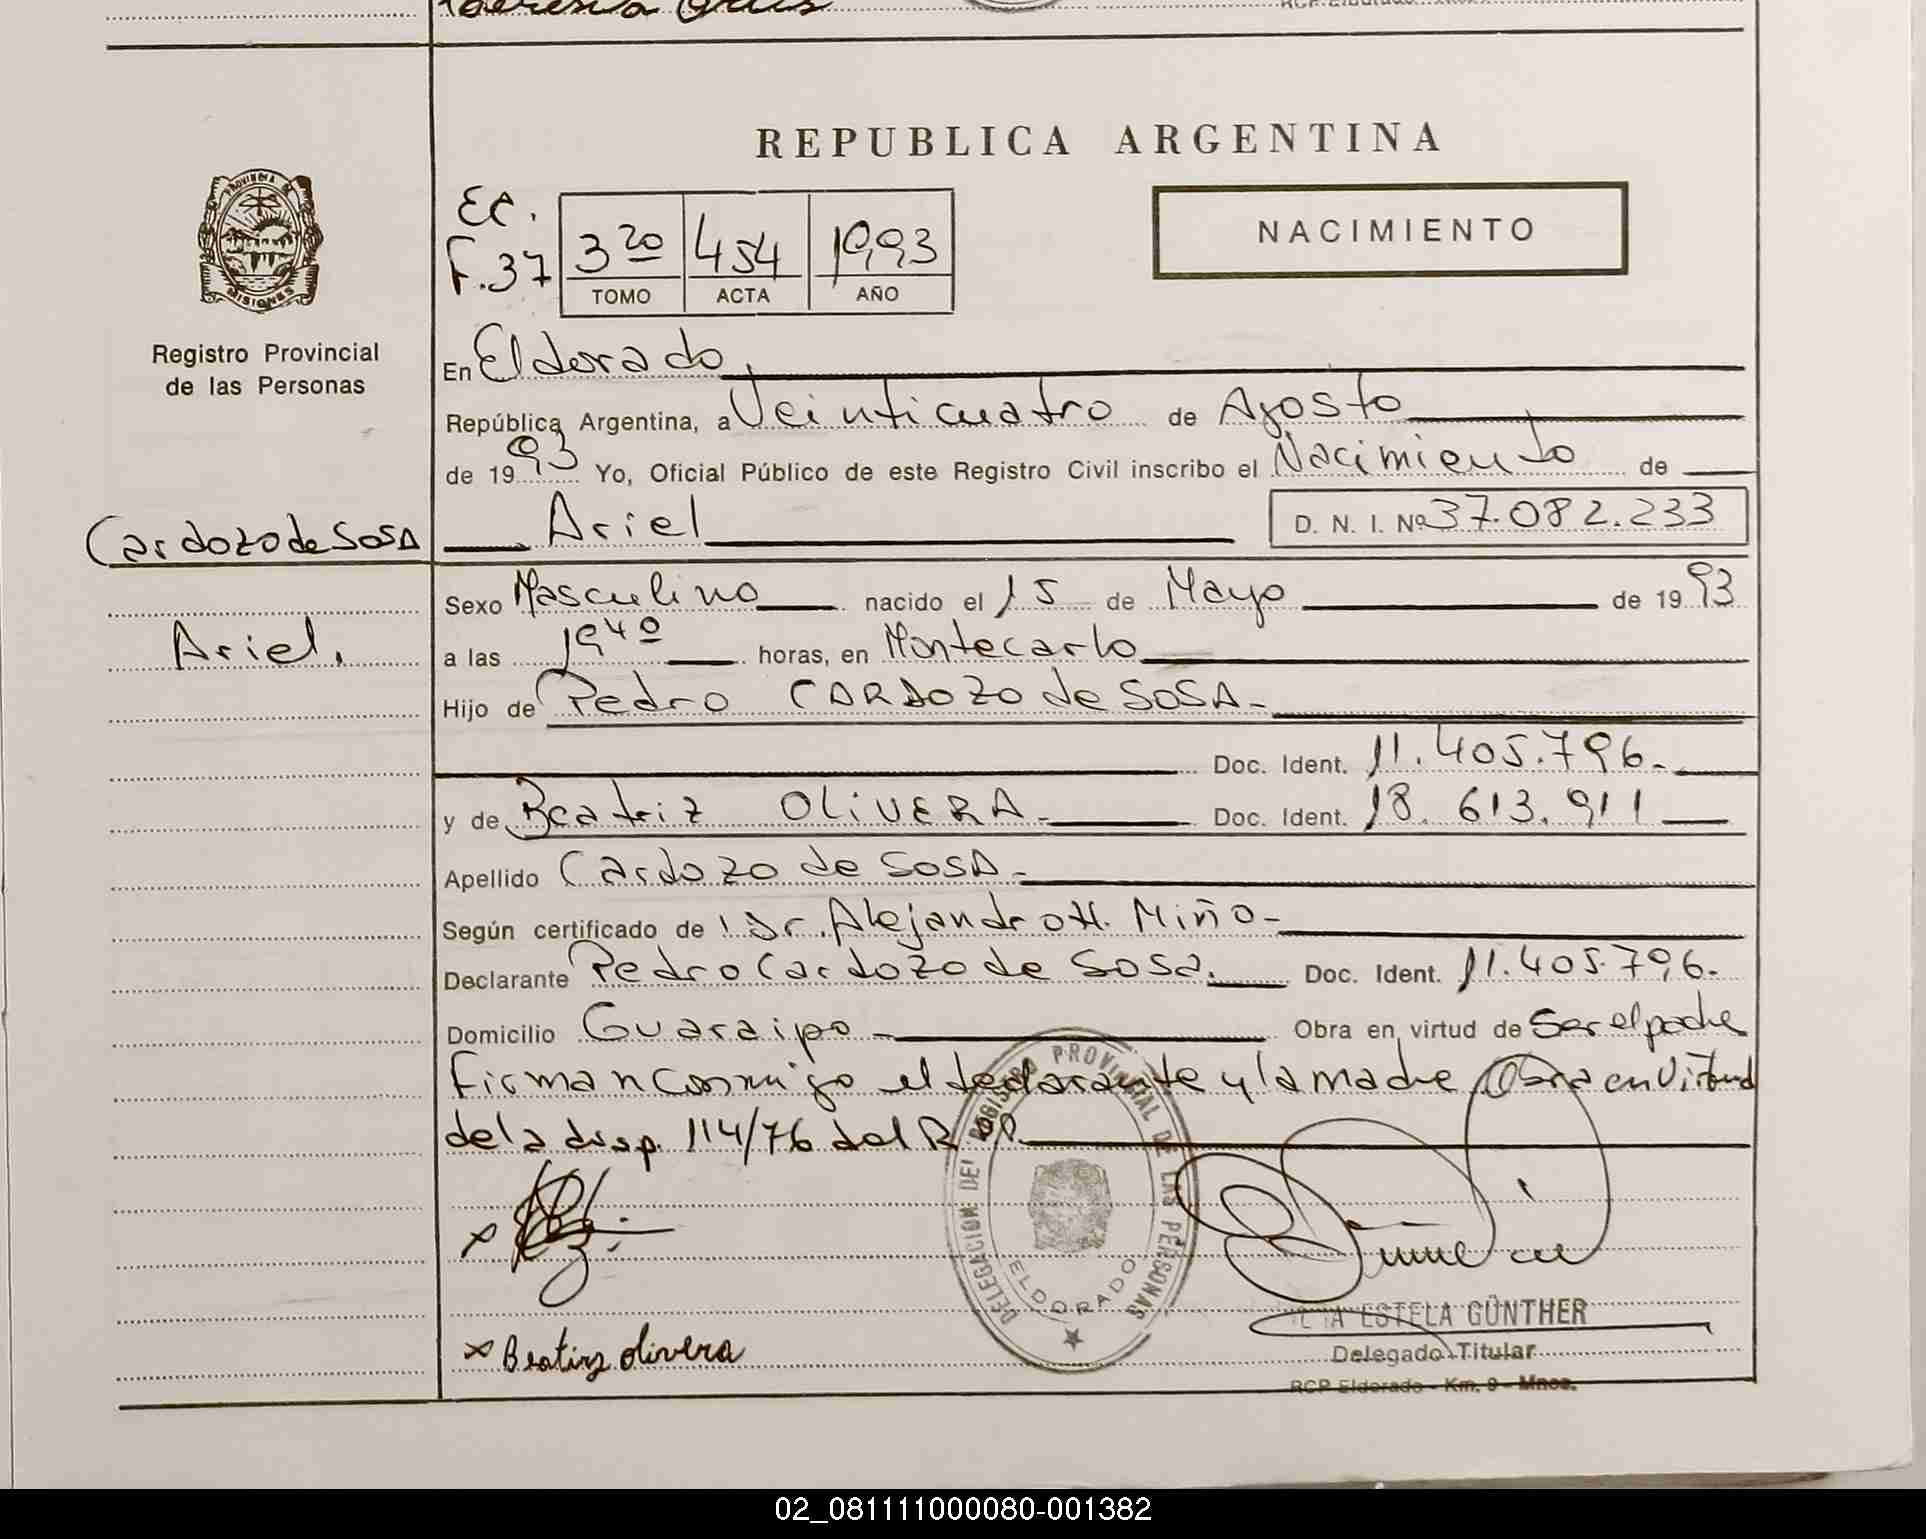 REPUBLICA ARGENTINA
PROVINCIA DE
MISIONES
Registro Provincial
de las Personas
Ec.
F.37
3 20 454 1993
TOMO ACTA AÑO
NACIMIENTO
En Eldorado,
República Argentina, a Veinticuatro de Agosto
de 1993 Yo, Oficial Público de este Registro Civil inscribo el Nacimiento de
Cardozo de SOSA
Ariel D. N. I. Nº 37.082.233
Sexo Masculino nacido el 15 de Mayo de 1993
Ariel.
a las 19 40 horas, en Montecarlo
Hijo de Pedro CARDOZO de SOSA-
Doc. Ident. 11.405.796.-
y de Beatriz OLIVERA- Doc. Ident. 18.613.911
Apellido Cardozo de SOSA-
Según certificado de Dr. Alejandro H. Miño-
Declarante Pedro Cardozo de Sosa. Doc. Ident. 11.405.796.
Domicilio Guaraipo- Obra en virtud de Ser el padre
Firman conmigo el declarante y la madre Obra en Virtud
de la disp. 114/76 del R.P.P.
DELEGACION DEL REGISTRO PROVINCIAL DE LAS PERSONAS
ELDORADO
x
x Beatirz olivera
ESTELA GÜNTHER
Delegado Titular
RCP Eldorado - Km. 9 - Mnes.
02_081111000080-001382